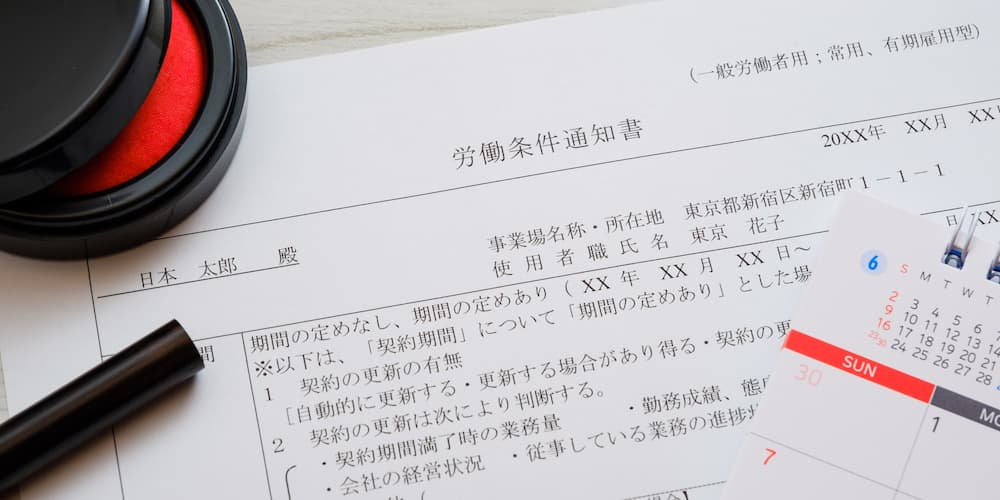 (一般労働者用；常用、有期雇用型)
労働条件通知書
20XX年　XX月　XX
日本　太郎　　殿
事業場名称・所在地　東京都新宿区新宿町1－1－1
使用者職氏名　東京　花子
間
期間の定めなし、期間の定めあり（ XX 年　XX 月　XX 日～
※以下は、「契約期間」について「期間の定めあり」とした場
1　契約の更新の有無
[自動的に更新する・更新する場合があり得る・契約の更
2　契約の更新は次により判断する。
・契約期間満了時の業務量　・勤務成績、態度
・会社の経営状況　・従事している業務の進捗状
6
S M T W T
2 3 4 5 6
9 10 11 12 13
16 17 18 19 20
23/30 24 25 26 27 28
SUN
MO
30
1
7